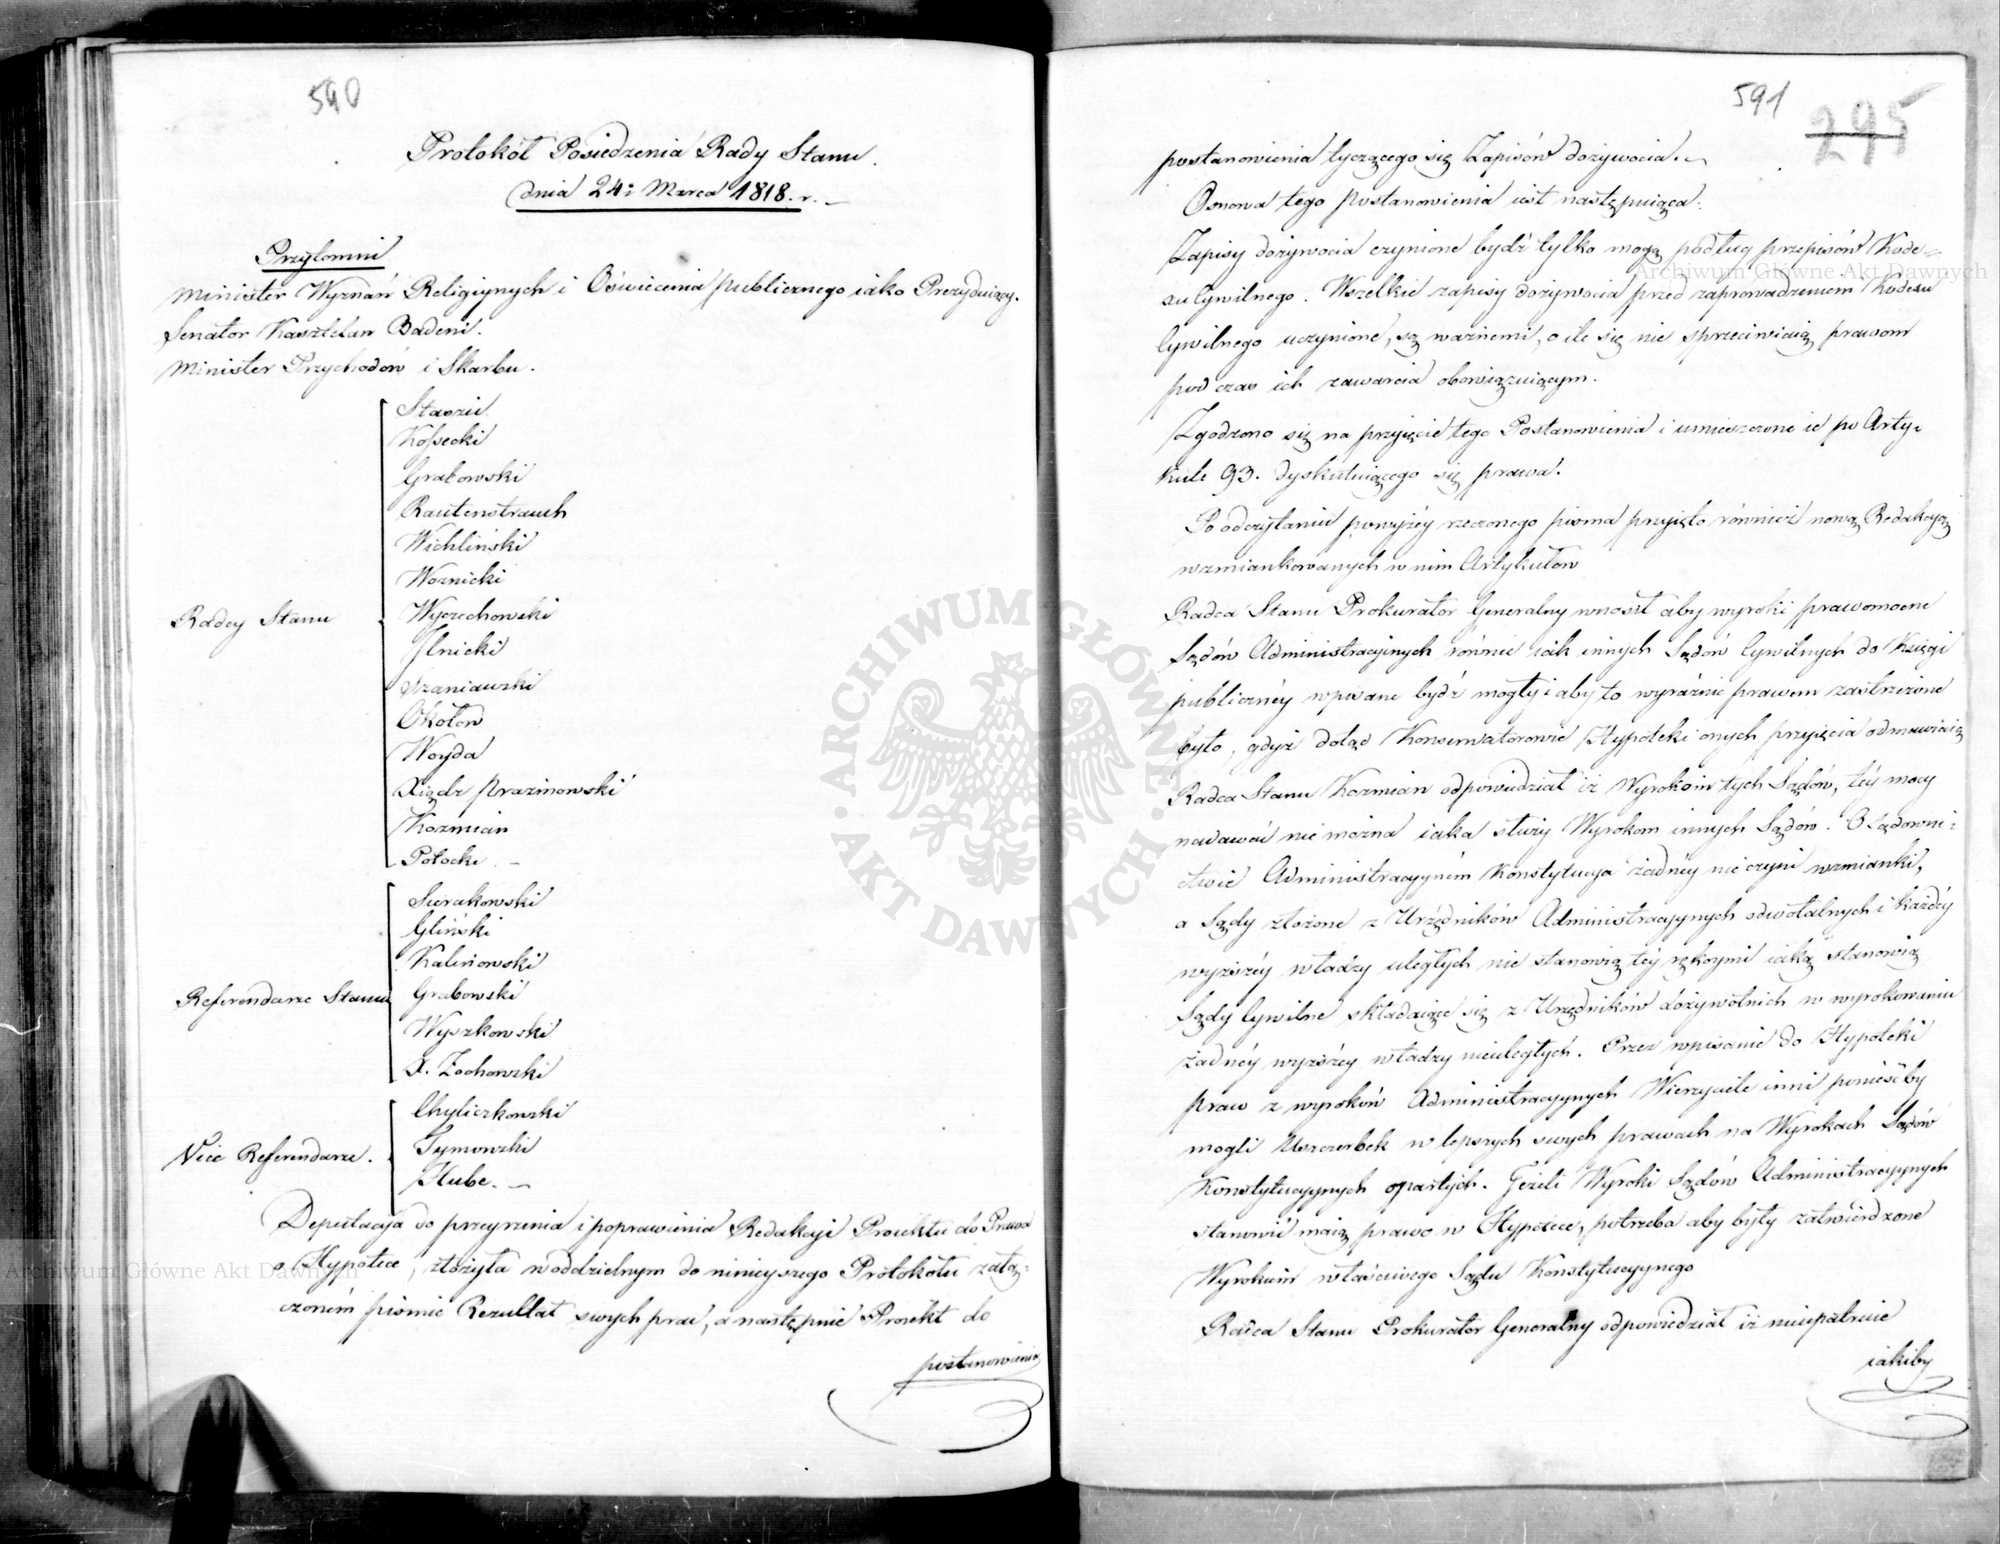 590
Protokół Posiedzenia Rady Stanu.
dnia 24: Marca 1818. r. –
Przytomni
Minister Wyznań Religiynych i Oświecenia publicznego iako Prezyduiący.
Senator Kasztelan Badeni.
Minister Przychodów i Skarbu.
Radcy Stanu
Staszic
Kossecki
Grabowski
Rautenstrauch
Wichliński
Woznicki
Wyczechowski
Ilnicki
Szaniawski
Okołow
Woyda
Xiądz Prażmowski
Kozmian
Potocki. –
Referendarze Stanu
Sierakowski
Gliński
Kalinowski
Grabowski
Wyszkowski
X. Żochowski
Vice Referendarze.
Chyliczkowski
Tymowski
Hube. –
Deputacja do przeyrzenia i poprawienia Redakcyi Proiektu do Prawa
o Hypotece, złożyła w oddzielnym do ninieyszego Protokołu załą-
czoném piśmie Rezultat swych prac, a następnie Proiekt do
postanowienia
591
295
postanowienia tyczącego się Zapisów dożywocia. –
Osnowa tego postanowienia iest następuiąca.
Zapisy dożywocia czynione bydź tylko mogą podług przepisów Kode-
su Cywilnego. Wszelkie zapisy dożywocia przed zaprowadzeniem Kodesu
Cywilnego uczynione, są ważnemi, o ile się nie sprzeciwiaią prawom
pod czas ich zawarcia obowiązuiącym.
Zgodzono się na przyięcie tego Postanowienia i umieszczono ie po Arty-
kule 93. dyskutuiącego się prawa.
Po odczytaniu powyżéy rzeczonego pisma przyięto również nową Redakcyą
wzmiankowanych w nim Artykułów
Radca Stanu Prokurator Generalny wnosił aby wyroki prawomocne
Sądów Administracyinych równie iak innych Sądów Cywilnych do Księgi
publicznéy wpisane bydź mogły i aby to wyraźnie prawem zastrzeżone
było, gdyż dotąd Konserwatorowie Hypoteki onych przyięcia odmawiaią
Radca Stanu Kozmian odpowiedział iż Wyrokom tych Sądów, téy mocy
nadawać nie można iaka służy Wyrokom innych Sądów. O Sądowni-
ctwie Administracyyném Konstytucya żadnéy nie czyni wzmianki,
a Sądy złożone z Urzędników Administracyynych odwołalnych i każdéy
wyższéy władzy uległych nie stanowią téy rękoymi iaką stanowią
Sądy Cywilne składaiące się z Urzędników dożywotnich w wyrokowaniu
żadnéy wyższéy władzy nieuległych. Przez wpisanie do Hypoteki
praw z wyroków Administracyynych Wierzyciele inni ponieśćby
mogli Uszczerbek w lepszych swych prawach na Wyrokach Sądów
Konstytucyynych opartych. Jeżeli Wyroki Sądów Administracyynych
stanowić maią prawo w Hypotece, potrzeba aby były zatwierdzone
Wyrokiem właściwego Sądu Konstytucyynego
Radca Stanu Prokurator Generalny odpowiedział iż nieupatruie
iakiby
ARCHIWUM GŁÓWNE AKT DAWNYCH
Archiwum Główne Akt Dawnych
Archiwum Główne Akt Dawnych